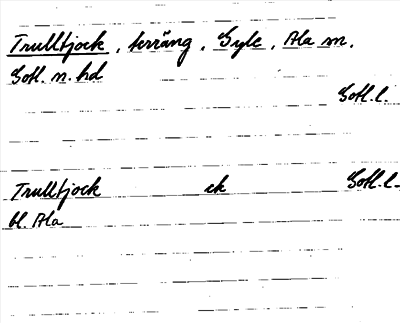 Trulltjock, terräng, Gyle, Ala sn,
Gotl. n. hd
Gotl. l.
Trulltjock ek Gotl. l.
bl. Ala